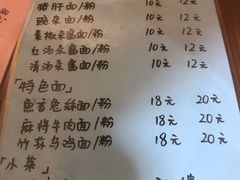 猪肝面/粉 10元 12元
豌杂面/粉 10元 12元
素椒杂酱面/粉 10元 12元
红汤杂酱面/粉 10元 12元
清汤杂酱面/粉 10元 12元
「特色面」
鱼香兔丝面/粉 18元 20元
麻辣牛肉面/粉 18元 20元
竹荪乌鸡面/粉 18元 20元
「小菜」